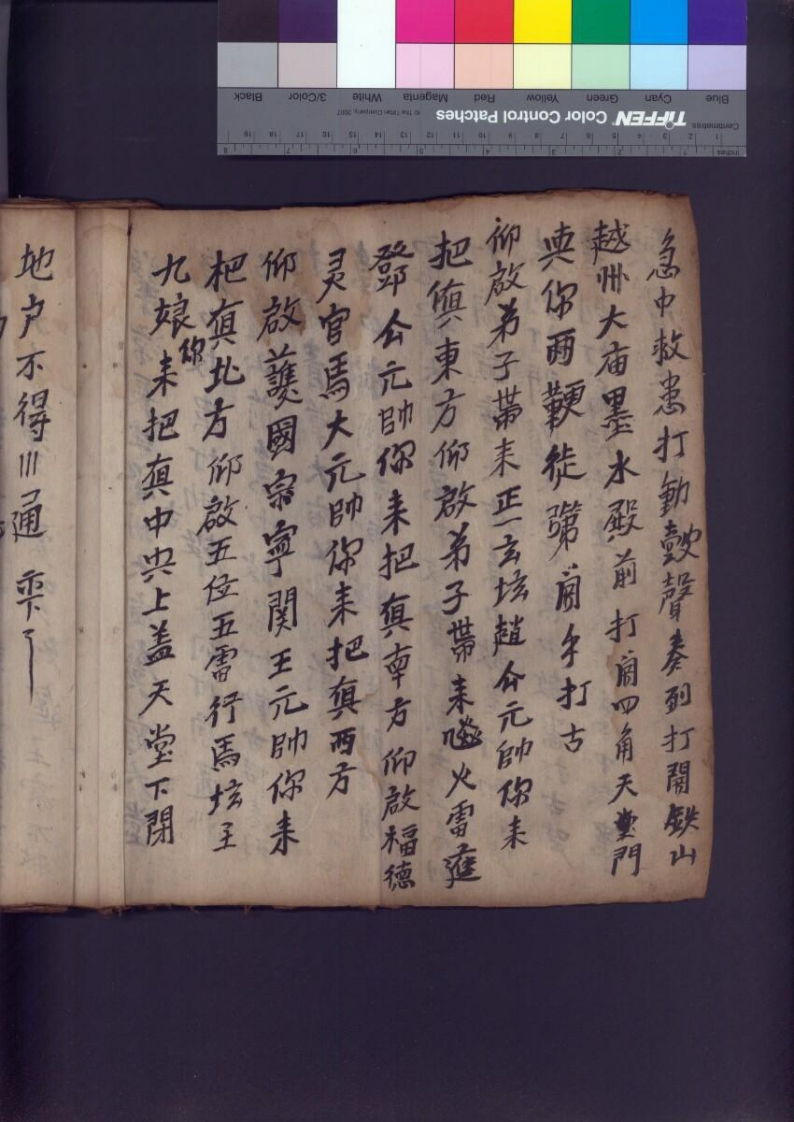 急中救患打動鼓聲奏列打開鉄山
越州大庙墨水殿前打開四角天堂門
與你兩鞭徒弟開手打古
仰啟弟子帶来正一玄坛趙公元帥你来
把镇東方仰啟弟子帶来火雷
鄧公元帥你来把镇南方仰啟福德
灵官馬大元帥你来把镇西方
仰啟護國崇寧関王元帥你来
把镇北方仰啟五位五雷行馬坛王
九娘你来把镇中央上盖天堂下閉
地户不得川通
Blue
Cyan
Green
Yellow
Red
Magenta
White
3/Color
Black
TIFFEN Color Control Patches
© The Tiffen Company, 2007
Centimetres
Inches